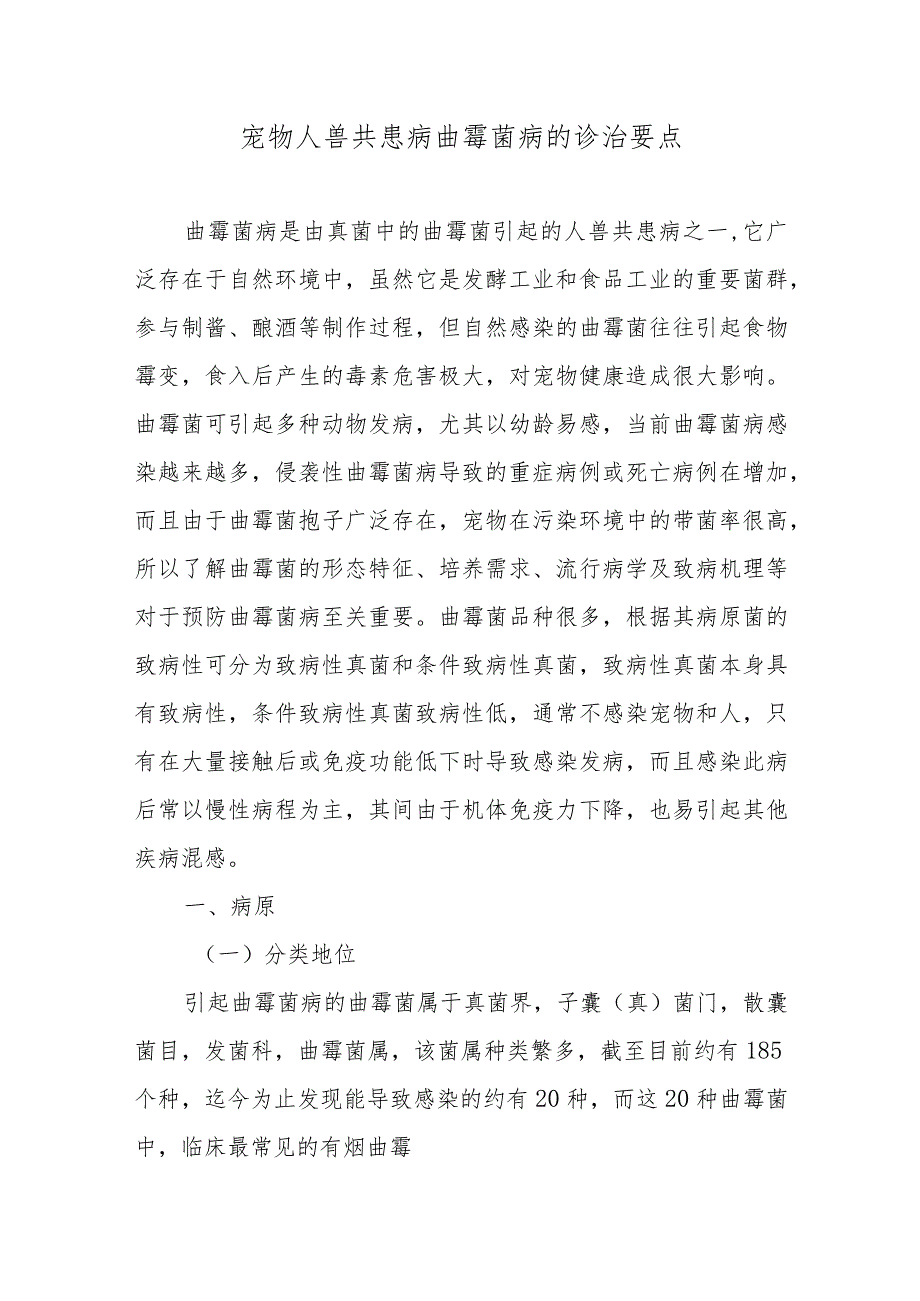 宠物人兽共患病曲霉菌病的诊治要点
曲霉菌病是由真菌中的曲霉菌引起的人兽共患病之一,它广
泛存在于自然环境中，虽然它是发酵工业和食品工业的重要菌群，
参与制酱、酿酒等制作过程，但自然感染的曲霉菌往往引起食物
霉变，食入后产生的毒素危害极大，对宠物健康造成很大影响。
曲霉菌可引起多种动物发病，尤其以幼龄易感，当前曲霉菌病感
染越来越多，侵袭性曲霉菌病导致的重症病例或死亡病例在增加，
而且由于曲霉菌抱子广泛存在，宠物在污染环境中的带菌率很高，
所以了解曲霉菌的形态特征、培养需求、流行病学及致病机理等
对于预防曲霉菌病至关重要。曲霉菌品种很多，根据其病原菌的
致病性可分为致病性真菌和条件致病性真菌，致病性真菌本身具
有致病性，条件致病性真菌致病性低，通常不感染宠物和人，只
有在大量接触后或免疫功能低下时导致感染发病，而且感染此病
后常以慢性病程为主，其间由于机体免疫力下降，也易引起其他
疾病混感。
一、病原
（一）分类地位
引起曲霉菌病的曲霉菌属于真菌界，子囊（真）菌门，散囊
菌目，发菌科，曲霉菌属，该菌属种类繁多，截至目前约有 185
个种，迄今为止发现能导致感染的约有 20 种，而这 20 种曲霉菌
中，临床最常见的有烟曲霉